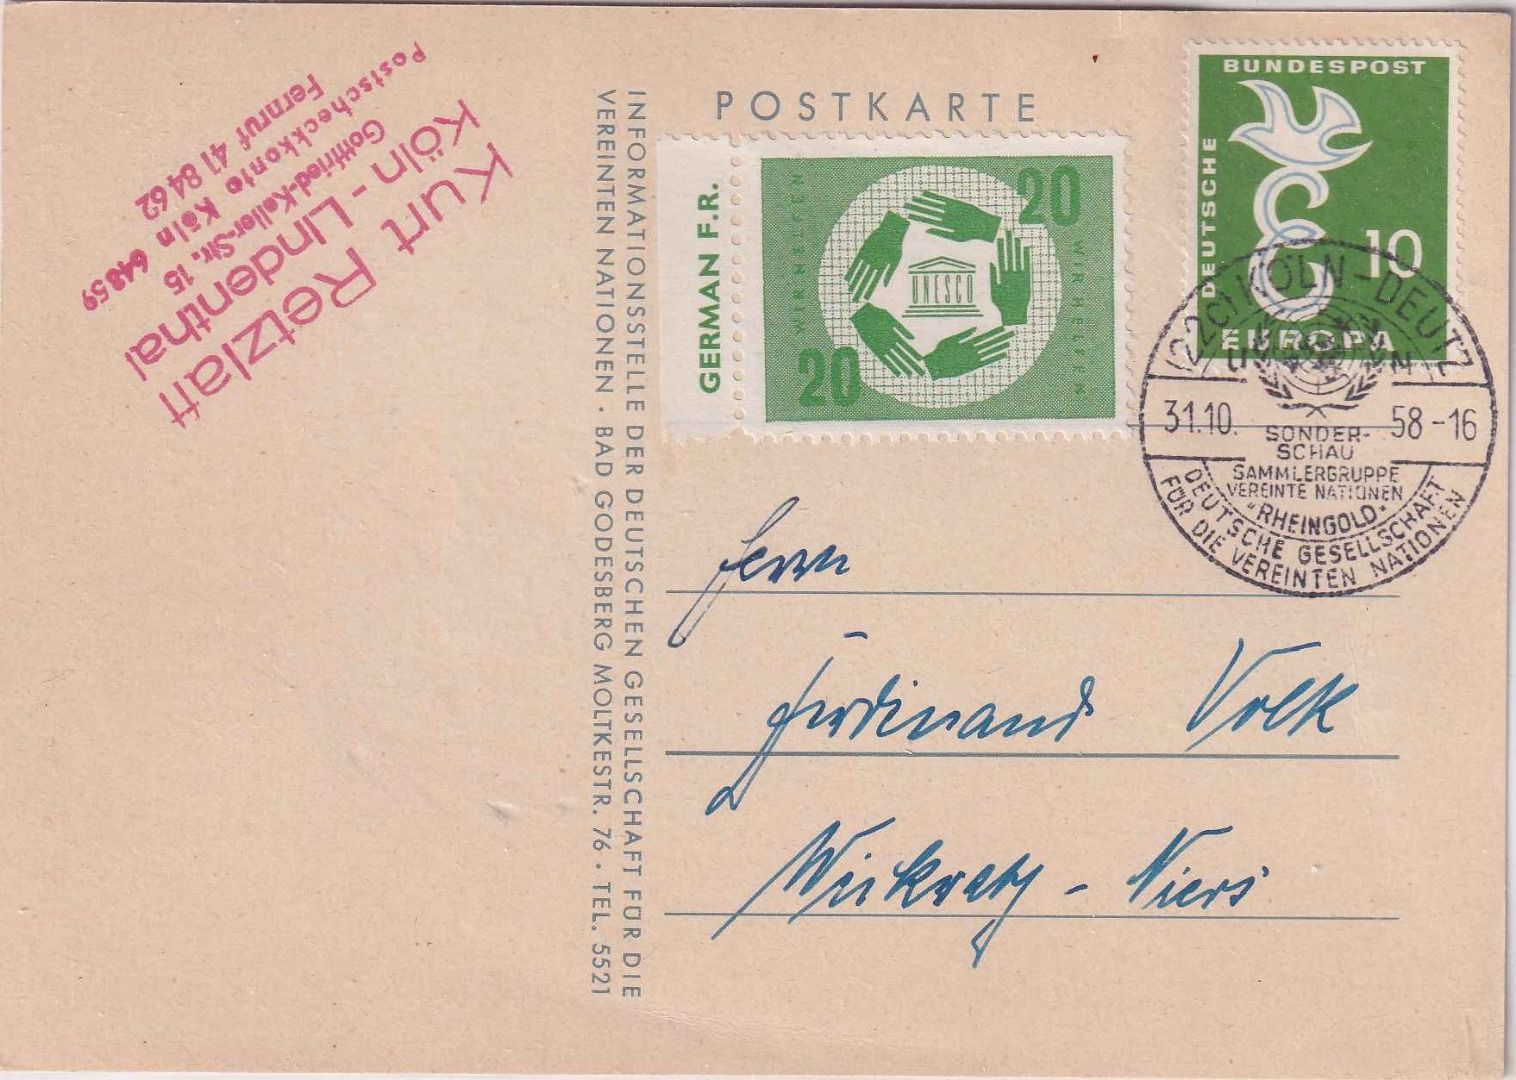 Kurt Retzlaff
Köln-Lindenthal
Gottfried-Keller-Str. 15
Postscheckkonto Köln 64859
Fernruf 418462
INFORMATIONSSTELLE DER DEUTSCHEN GESELLSCHAFT FÜR DIE
VEREINTEN NATIONEN · BAD GODESBERG MOLTKESTR. 76 · TEL. 5521
POSTKARTE
GERMAN F.R.
WIR RETTEN
20
UNESCO
20
WIR HELFEN
BUNDESPOST
DEUTSCHE
10
EUROPA
(22c) KÖLN-DEUTZ
UN VN
31.10. 58-16
SONDER-
SCHAU
SAMMLERGRUPPE
VEREINTE NATIONEN
"RHEINGOLD"
DEUTSCHE GESELLSCHAFT
FÜR DIE VEREINTEN NATIONEN
Herrn
Ferdinand Volk
Wickrath - Niers